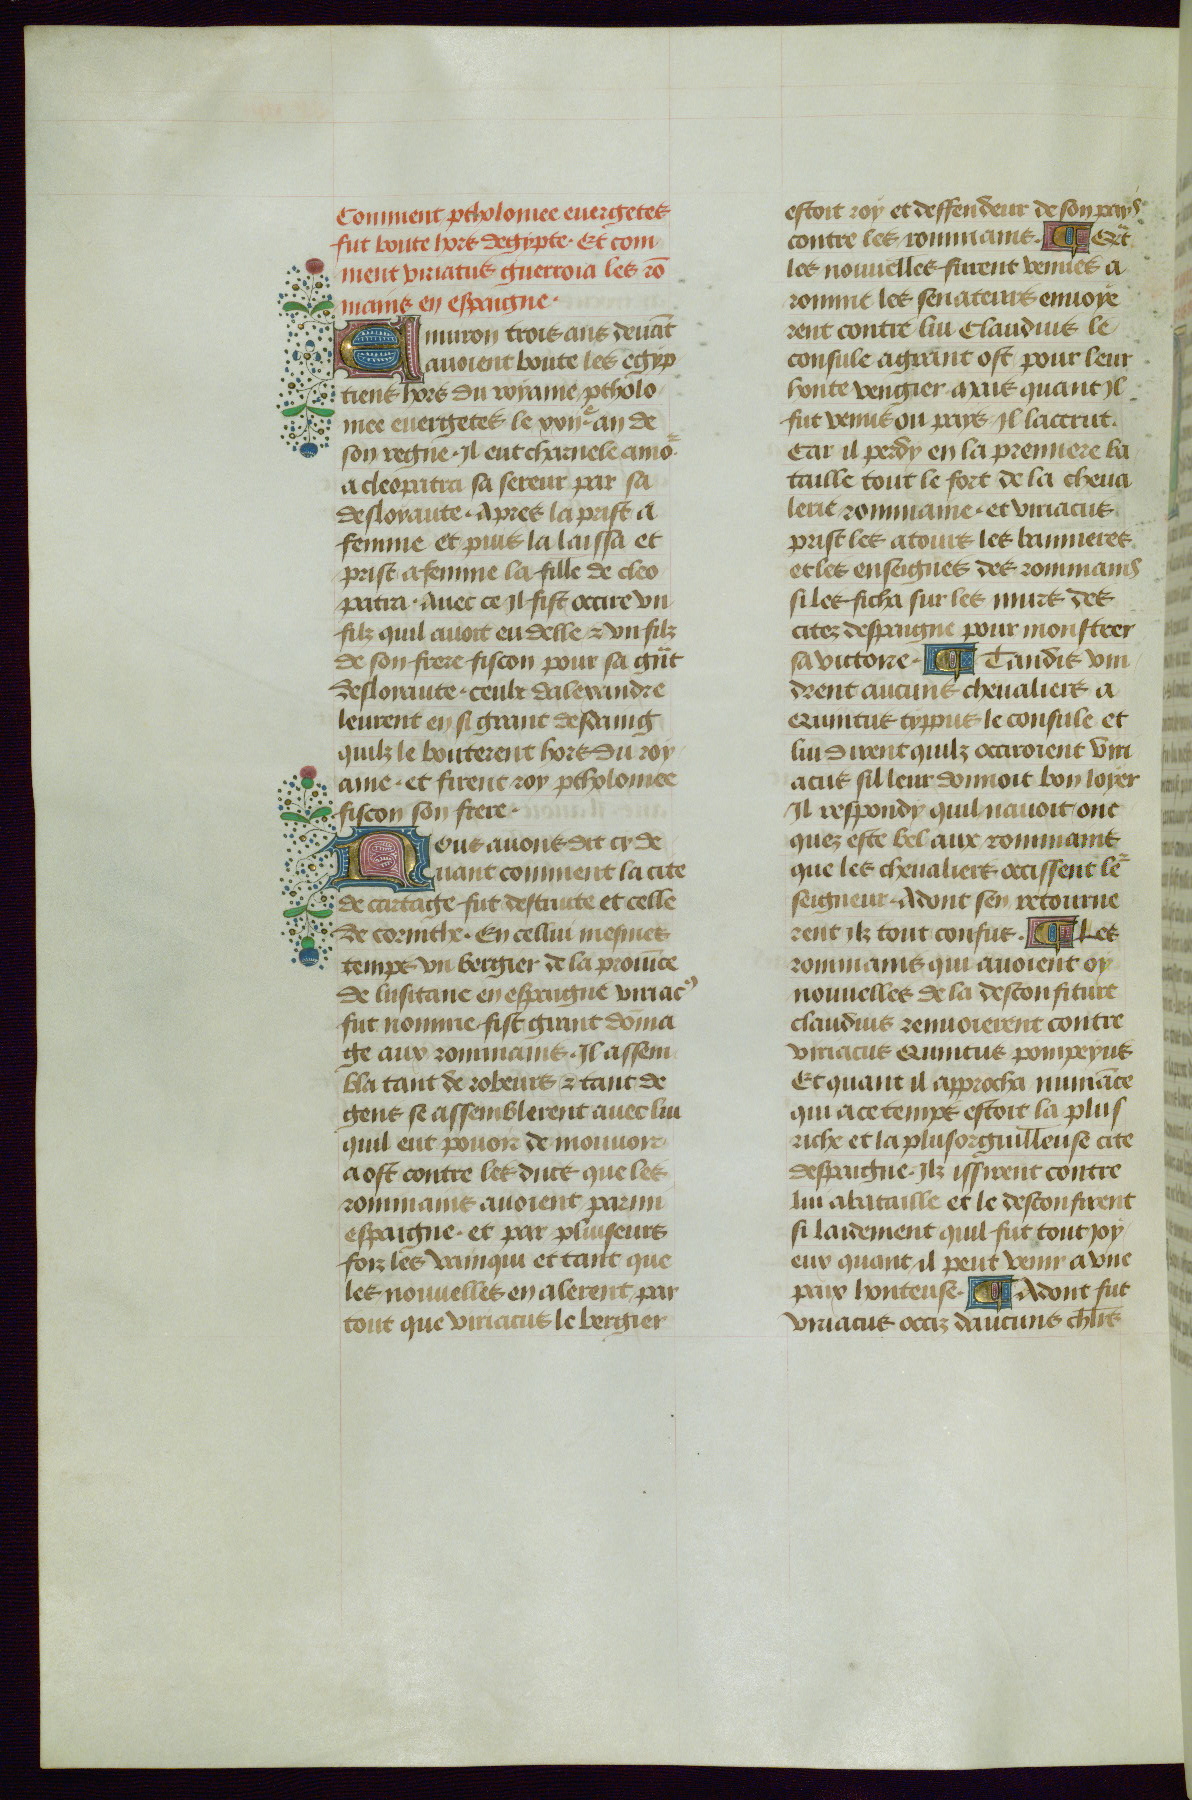 Comment ptholomee euergetes
fut boute hors degypte. Et com
ment viriatus guerroia les rō
mains en espaigne.
Enuiron trois ans deuāt
auoient boute les egyp
tiens hors du royame ptholo
mee euergetes le xviie an de
son regne. Il eut charnele amo
a cleopatra sa sereur par sa
desloyaute. Apres la prist a
femme et puis la laissa et
prist a femme la fille de cleo
patra. Auec ce Il fist occire vn
filz quil auoit eu delle & vn filz
de son frere fiscon pour sa gūt
desloyaute. ceulx dalexandre
leurent en si grant desdaing
quilz le bouterent hors du roy
ame. et firent roy ptholomee
fiscon son frere.
Nous auons dit cy de
uant comment la cite
de cartage fut destruite et celle
de corinthe. En cellui mesmes
temps vn bergier de la prouīce
de lusitane en espaigne viriac9
fut nomme fist grant dōma
ge aux rommains. Il assem
bla tant de robeurs & tant de
gens se assemblerent auec lui
quil eut pouoir de mouuoir
a ost contre les ducs que les
rommains auoient parmi
espaigne. et par pluiseurs
foiz les vainqui et tant que
les nouuelles en alerent par
tout que viriacus le bergier
estoit roy et deffendeur de son pays
contre les rommains. Qūt
les nouuelles furent venues a
romme les senateurs enuoye
rent contre lui Claudius le
consule a grant ost pour leur
honte vengier mais quant Il
fut venus ou pays Il laccrut.
Car il perdy en la premiere ba
taille tout le fort de la cheua
lerie rommaine. et viriacus
prist les atours les bannieres
et les enseignes des rommains
si les ficha sur les murs des
citez despaigne pour monstrer
sa victoire. Tandis vin
drent aucuns cheualiers a
Quintus typpus le consule et
lui dirent quilz occiroient viri
acus sil leur donnoit bon loyer
Il respondy quil nauoit onc
quez este bel aux rommains
que les cheualiers occissent le
seigneur. Adont sen retourne
rent ilz tout confus. Les
rommains qui auoient oy
nouuelles de la desconfiture
claudius renuoierent contre
viriacus Quintus pompeyus
Et quant il approcha numāce
qui a ce temps estoit la plus
riche et la plus orguilleuse cite
despaigne. Ilz issirent contre
lui a bataille et le desconfirent
si laidement quil fut tout Joy
eux quant il peut venir a vne
paix honteuse. Adont fut
viriacus occiz daucuns chlrs